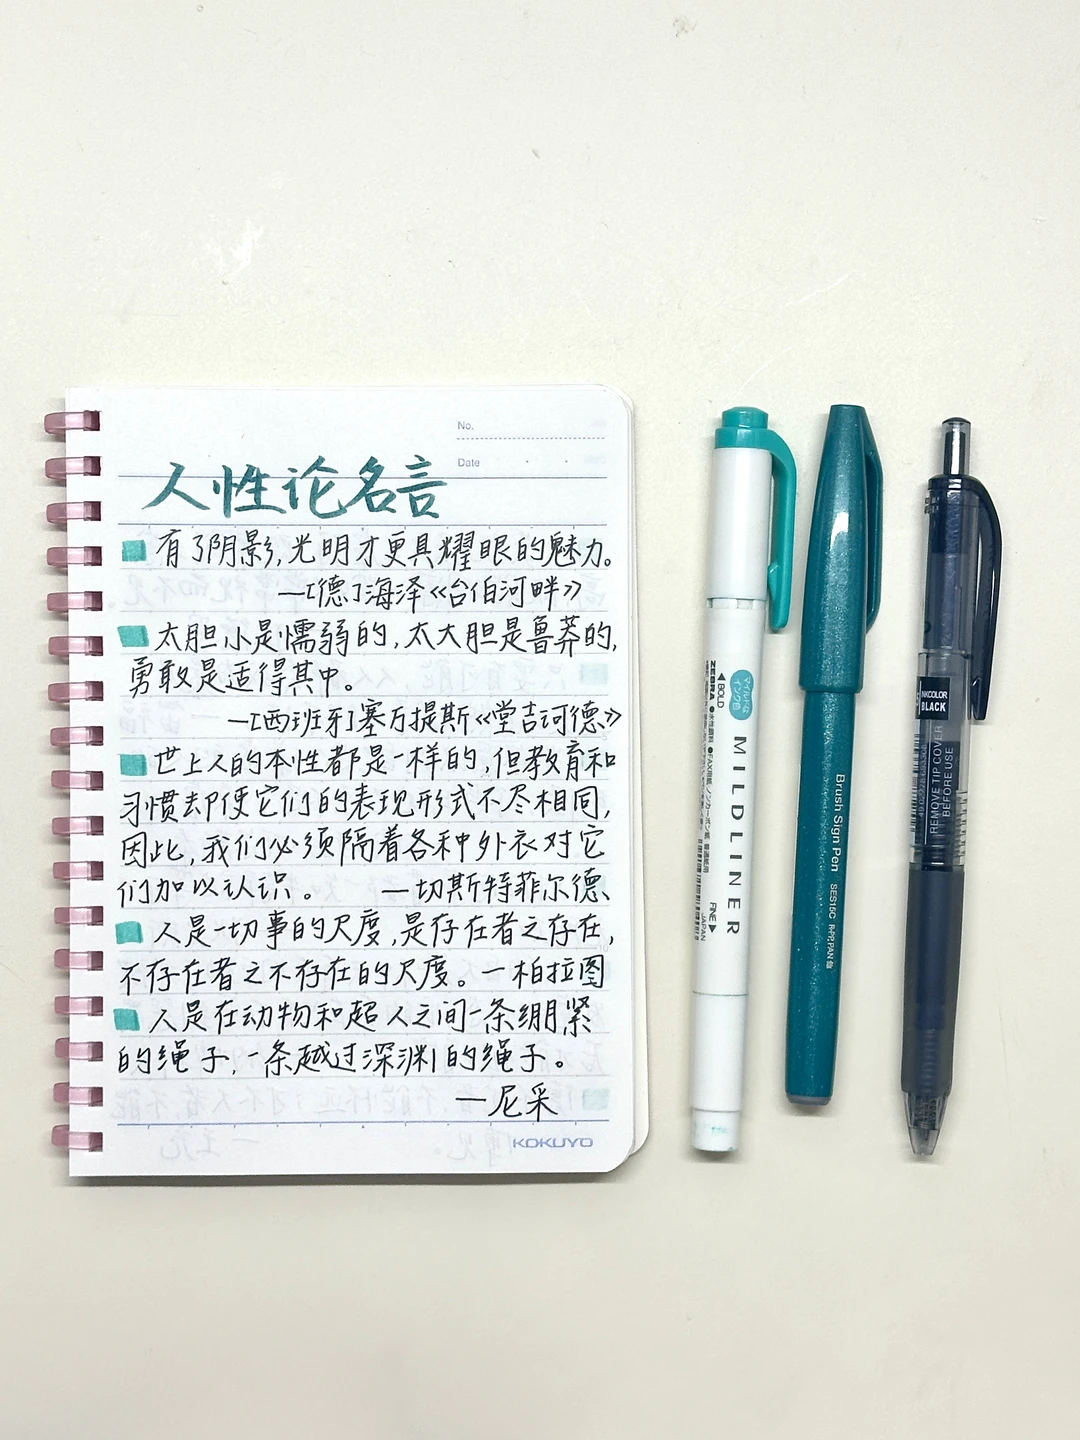 No.
Date
人性论名言
有了阴影,光明才更具耀眼的魅力。
—[德]海泽《台伯河畔》
太胆小是懦弱的,太大胆是鲁莽的,
勇敢是适得其中。
—[西班牙]塞万提斯《堂吉诃德》
世上人的本性都是一样的,但教育和
习惯却使它们的表现形式不尽相同,
因此,我们必须隔着各种外衣对它
们加以认识。 —切斯特菲尔德
人是一切事的尺度,是存在者之存在,
不存在者之不存在的尺度。—柏拉图
人是在动物和超人之间一条绷紧
的绳子,一条越过深渊的绳子。
—尼采
KOKUYO
マイルドな
インク色
◀BOLD
ZEBRA ●水性顔料 ●FAX用紙 ノンカーボン紙 普通紙用
MILDLINER
FINE▶
JAPAN
Brush Sign Pen SES15C
INKCOLOR
BLACK
REMOVE TIP COVER
BEFORE USE